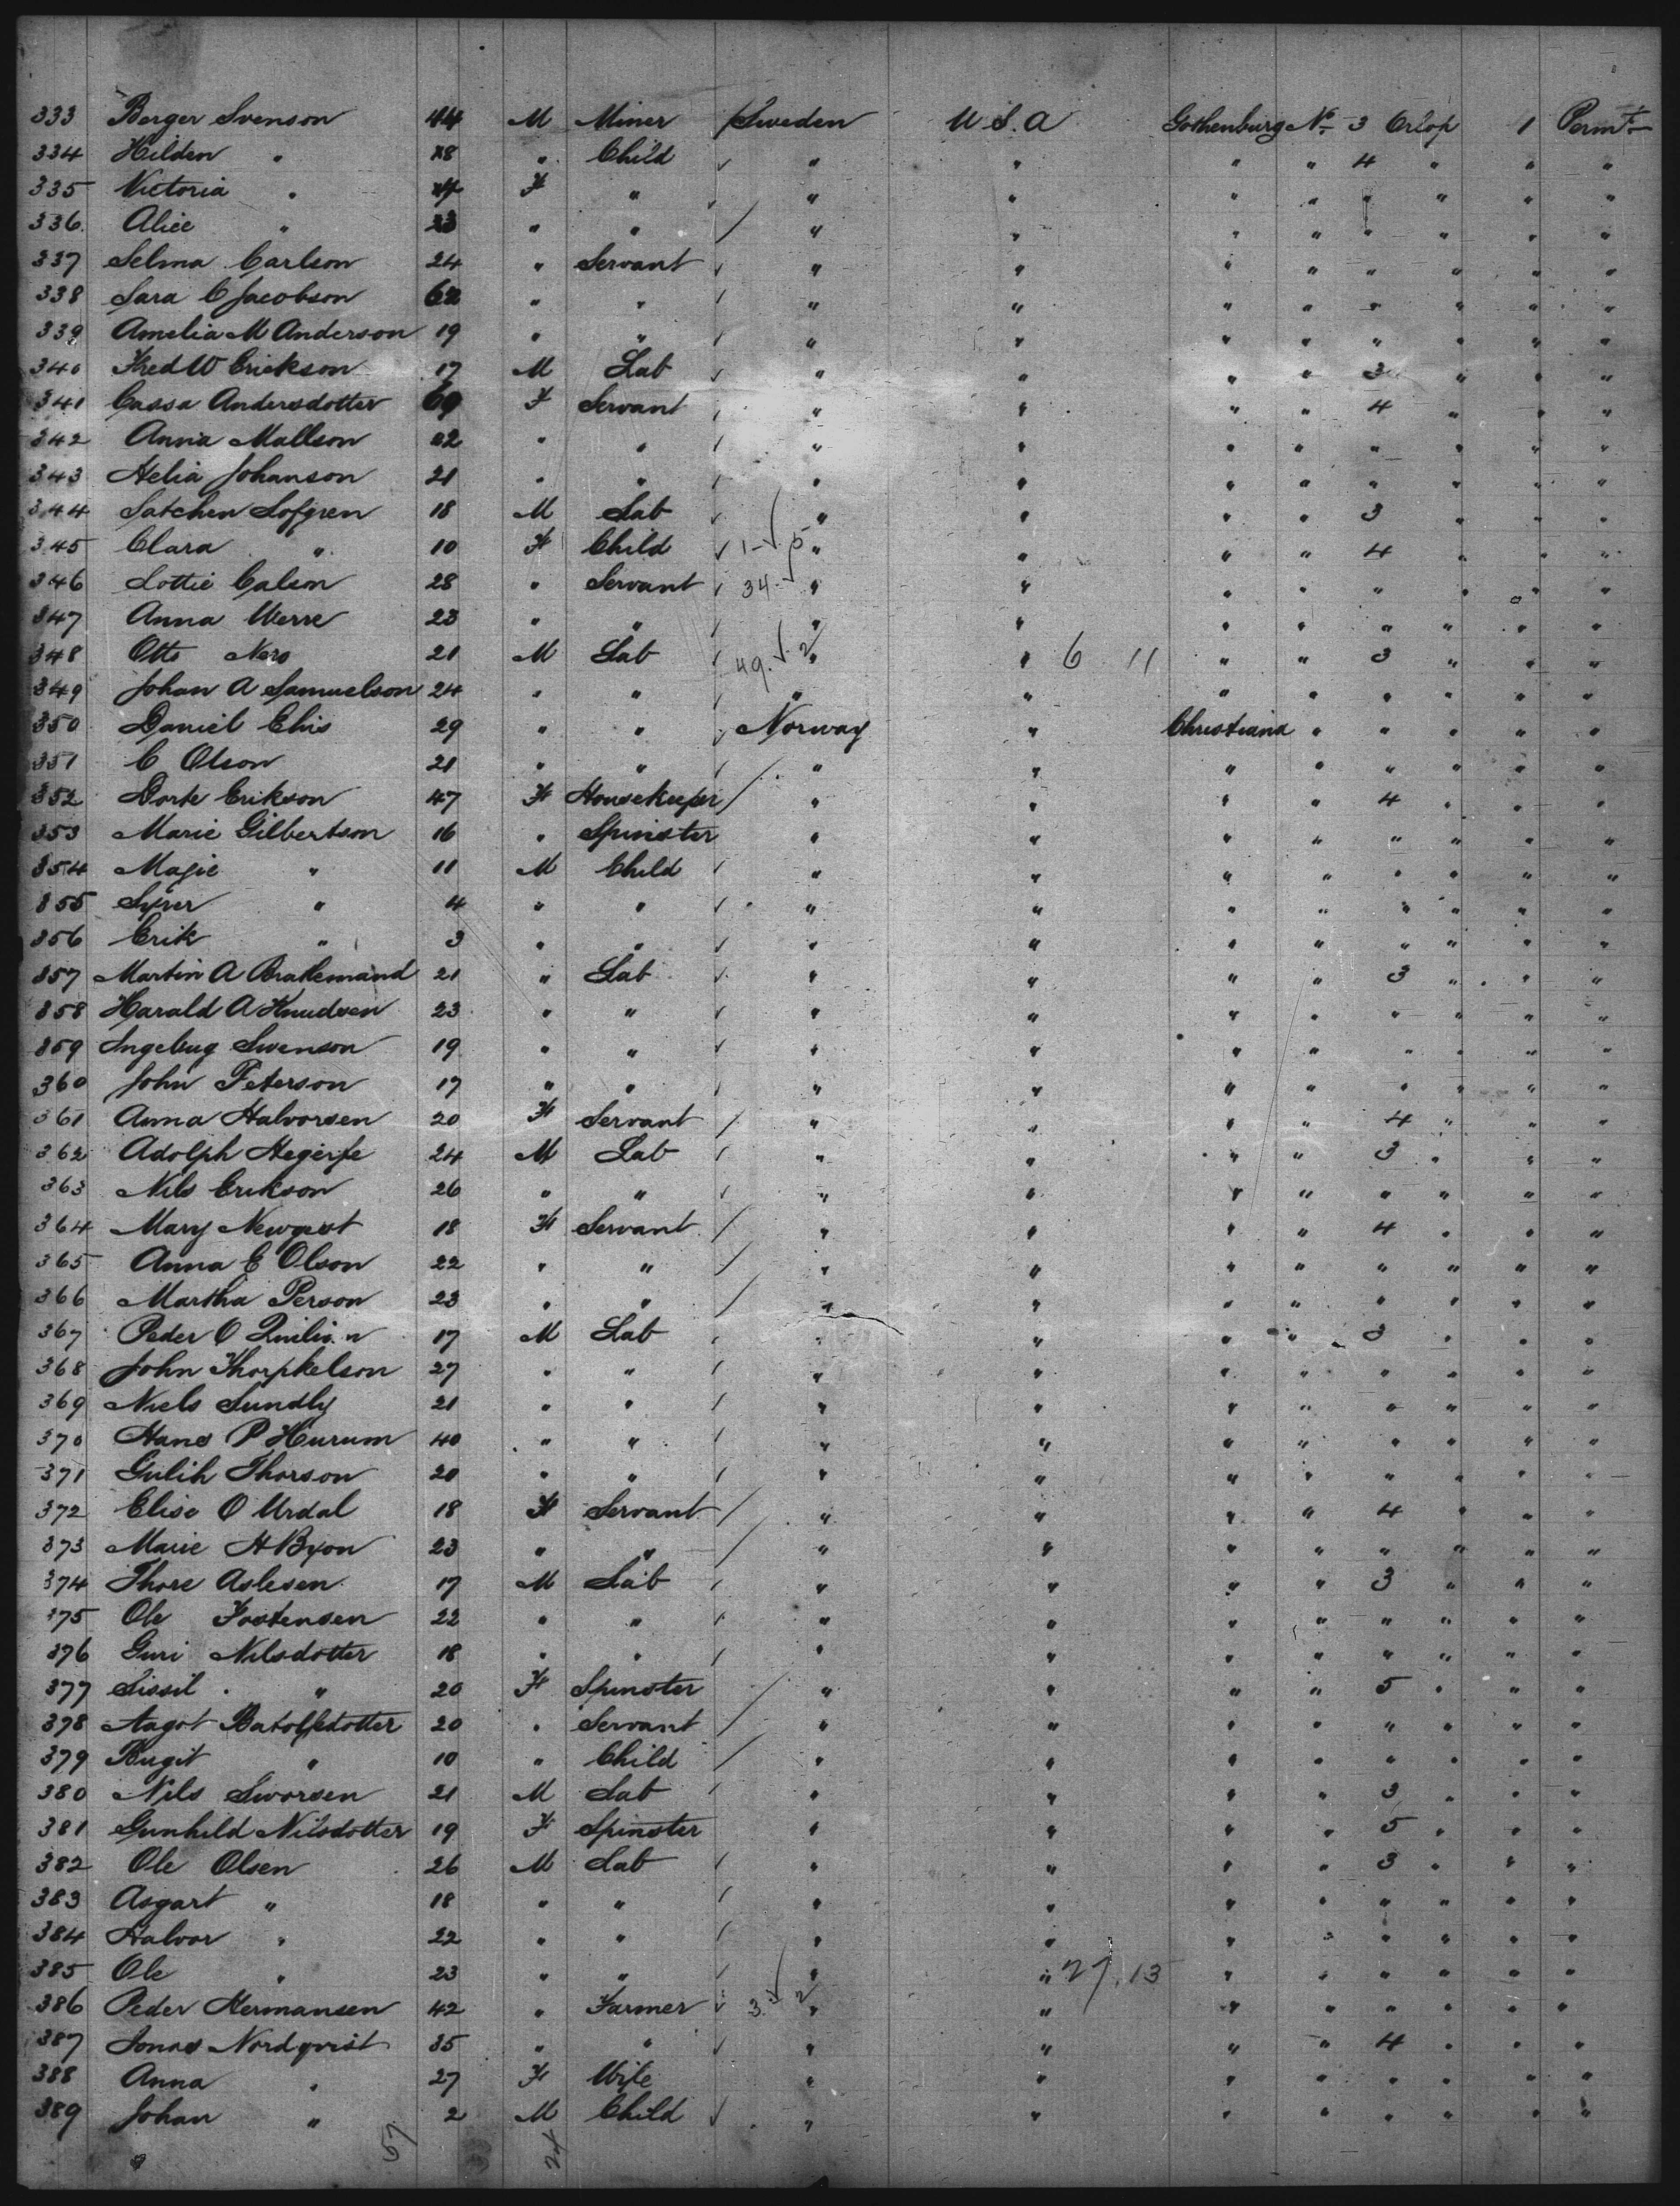 333 Berger Svenson 44 M Miner Sweden U.S.A Gothenburg No 3 Orlop 1 Permt
334 Hilden " 8 " Child " " " " 4 " " "
335 Victoria " F " " " " " " " " "
336 Alice " " " " " " " " " " "
337 Selma Carlson 24 " Servant " " " " " " " "
338 Sara C Jacobson 62 " " " " " " " " " "
339 Amelia M Anderson 19 " " " " " " " " " "
340 Fred W Erickson 17 M Lab " " " " 3 " " "
341 Cassa Andersdotter 69 F Servant " " " " 4 " " "
342 Anna Mallson 22 " " " " " " " " " "
343 Helia Johanson 21 " " " " " " " " " "
344 Satchen Lofgren 18 M Lab " " " " 3 " " "
345 Clara " 10 F Child " " " " 4 " " "
346 Lottie Calson 28 " Servant 34 " " " " " " " "
347 Anna Werre 23 " " " " " " " " " "
348 Otto Ners 21 M Lab 49 2 " " 6 11 " " 3 " " "
349 Johan A Samuelson 24 " " " " " " " " " "
350 Daniel Ehis 29 " " Norway " Christiana " " " " "
351 C Olson 21 " " " " " " " " " "
352 Dorte Erikson 47 F Housekeeper " " " " 4 " " "
353 Marie Gilbertson 16 " Spinster " " " " " " " "
354 Magie " 11 M Child " " " " " " " "
355 Syver " 4 " " " " " " " " " "
356 Erik " 3 " " " " " " " " " "
357 Martin A Bratlemand 21 " Lab " " " " 3 " " "
358 Harald A Knudsen 23 " " " " " " " " " "
359 Ingebug Swenson 19 " " " " " " " " " "
360 John Peterson 17 " " " " " " " " " "
361 Anna Halvorsen 20 F Servant " " " " 4 " " "
362 Adolph Hegerje 24 M Lab " " " " 3 " " "
363 Nils Erikson 26 " " " " " " " " " "
364 Mary Newgest 18 F Servant " " " " 4 " " "
365 Anna E Olson 22 " " " " " " " " " "
366 Martha Person 23 " " " " " " " " " "
367 Peder O 17 M Lab " " " " 3 " " "
368 John Thorpkelson 27 " " " " " " " " " "
369 Niels Sundly 21 " " " " " " " " " "
370 Hans P Hurum 40 " " " " " " " " " "
371 Gulih Thorson 20 " " " " " " " " " "
372 Elise O Urdal 18 F Servant " " " " 4 " " "
373 Marie H Byon 23 " " " " " " " " " "
374 Thore Aslesen 17 M Lab " " " " 3 " " "
375 Ole Fostensen 22 " " " " " " " " " "
376 Guri Nilsdotter 18 " " " " " " " " " "
377 Sissil " 20 F Spinster " " " " 5 " " "
378 Aagot Batolfsdotter 20 " Servant " " " " " " " "
379 Bugit " 10 " Child " " " " " " " "
380 Nils Sworsen 21 M Lab " " " " 3 " " "
381 Gunhild Nilsdotter 19 F Spinster " " " " 5 " " "
382 Ole Olsen 26 M Lab " " " " 3 " " "
383 Asgart " 18 " " " " " " " " " "
384 Halvor " 22 " " " " " " " " " "
385 Ole " 23 " " " " 27 13 " " " " " "
386 Peder Hermansen 42 " Farmer 3 2 " " " " " " " "
387 Jonas Nordqvist 35 " " " " " " 4 " " "
388 Anna " 27 F Wife " " " " " " " "
389 Johan " 2 M Child " " " " " " " "
57 24